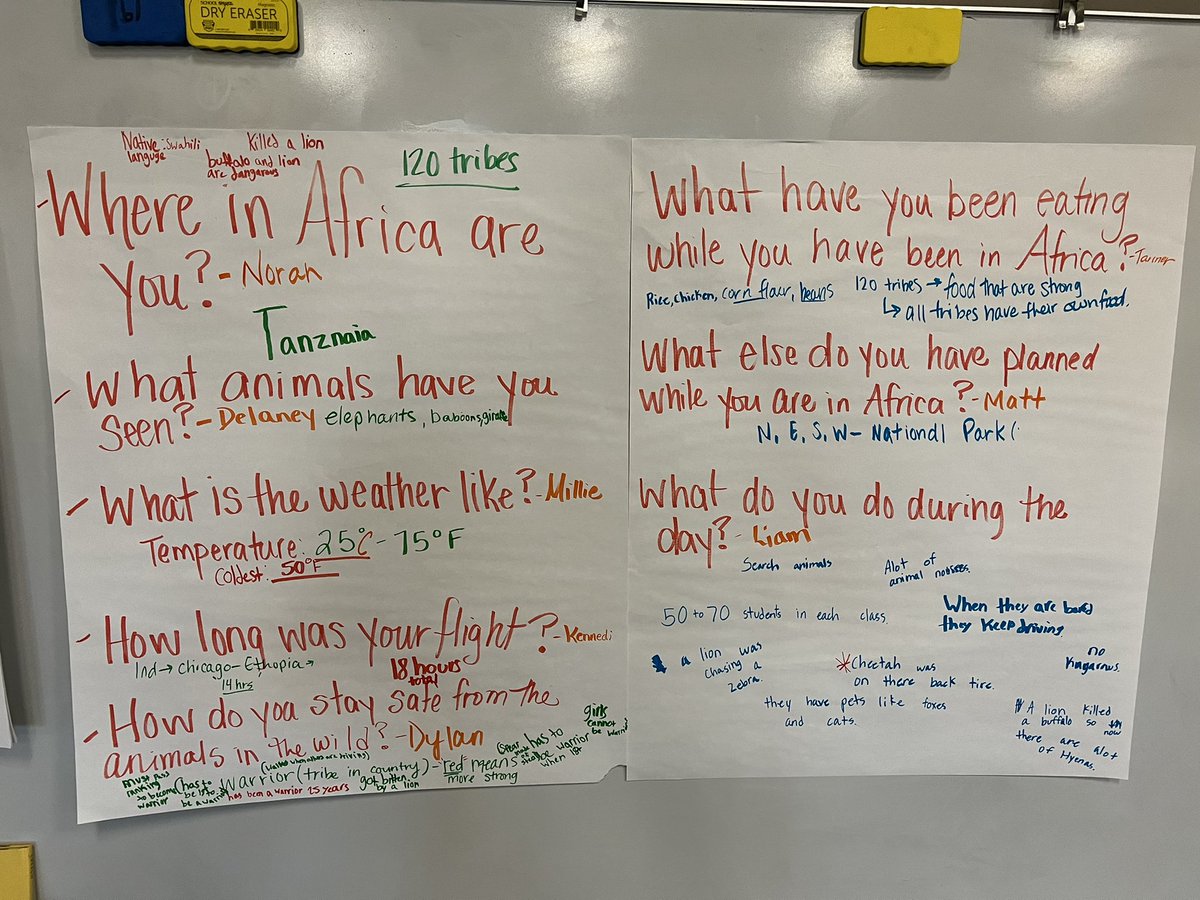 DRY ERASER
Native :Swahili
languge
Killed a lion
buffalo and lion
are dangarous
120 tribes
-Where in Africa are
you?-Norah
Tanznaia
- What animals have you
seen?-Delaney elephants, baboons, giraffe
- What is the weather like?-Millie
Temperature: 25°C-75°F
Coldest: 50°F
- How long was your flight?-Kennedi
Ind→chicago-Ethopia→
14 hrs
18 hours
total
- How do you stay safe from the
animals in the wild?-Dylan
must pass
ranking
to become
warrior
(has to
be 18 to
be a warrior
warrior (tribe in country)-red means
more strong
has been a warrior 25 years
got bitten
by a lion
has to
be warrior
when 18
girls
cannot
be warrior
What have you been eating
while you have been in Africa?-Tanner
Rice, chicken, corn flour, beans
120 tribes → food that are strong
↳ all tribes have their own food.
What else do you have planned
while you are in Africa?-Matt
N, E, S, W- National Park(
What do you do during the
day?-Liam
Search animals
Alot of
animal noises.
50 to 70 students in each class
When they are bored
they keep driving
a lion was
chasing a
zebra.
*Cheetah was
on there back tire.
no
Kangarous.
they have pets like foxes
and cats.
A lion killed
a buffalo so
now
there are alot
of Hyenas.